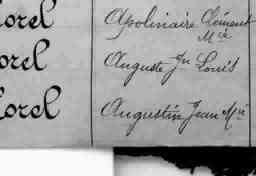 orel Apolinaire Clément
Mie
orel Auguste Jn Louis
orel Augustin Jean Mie